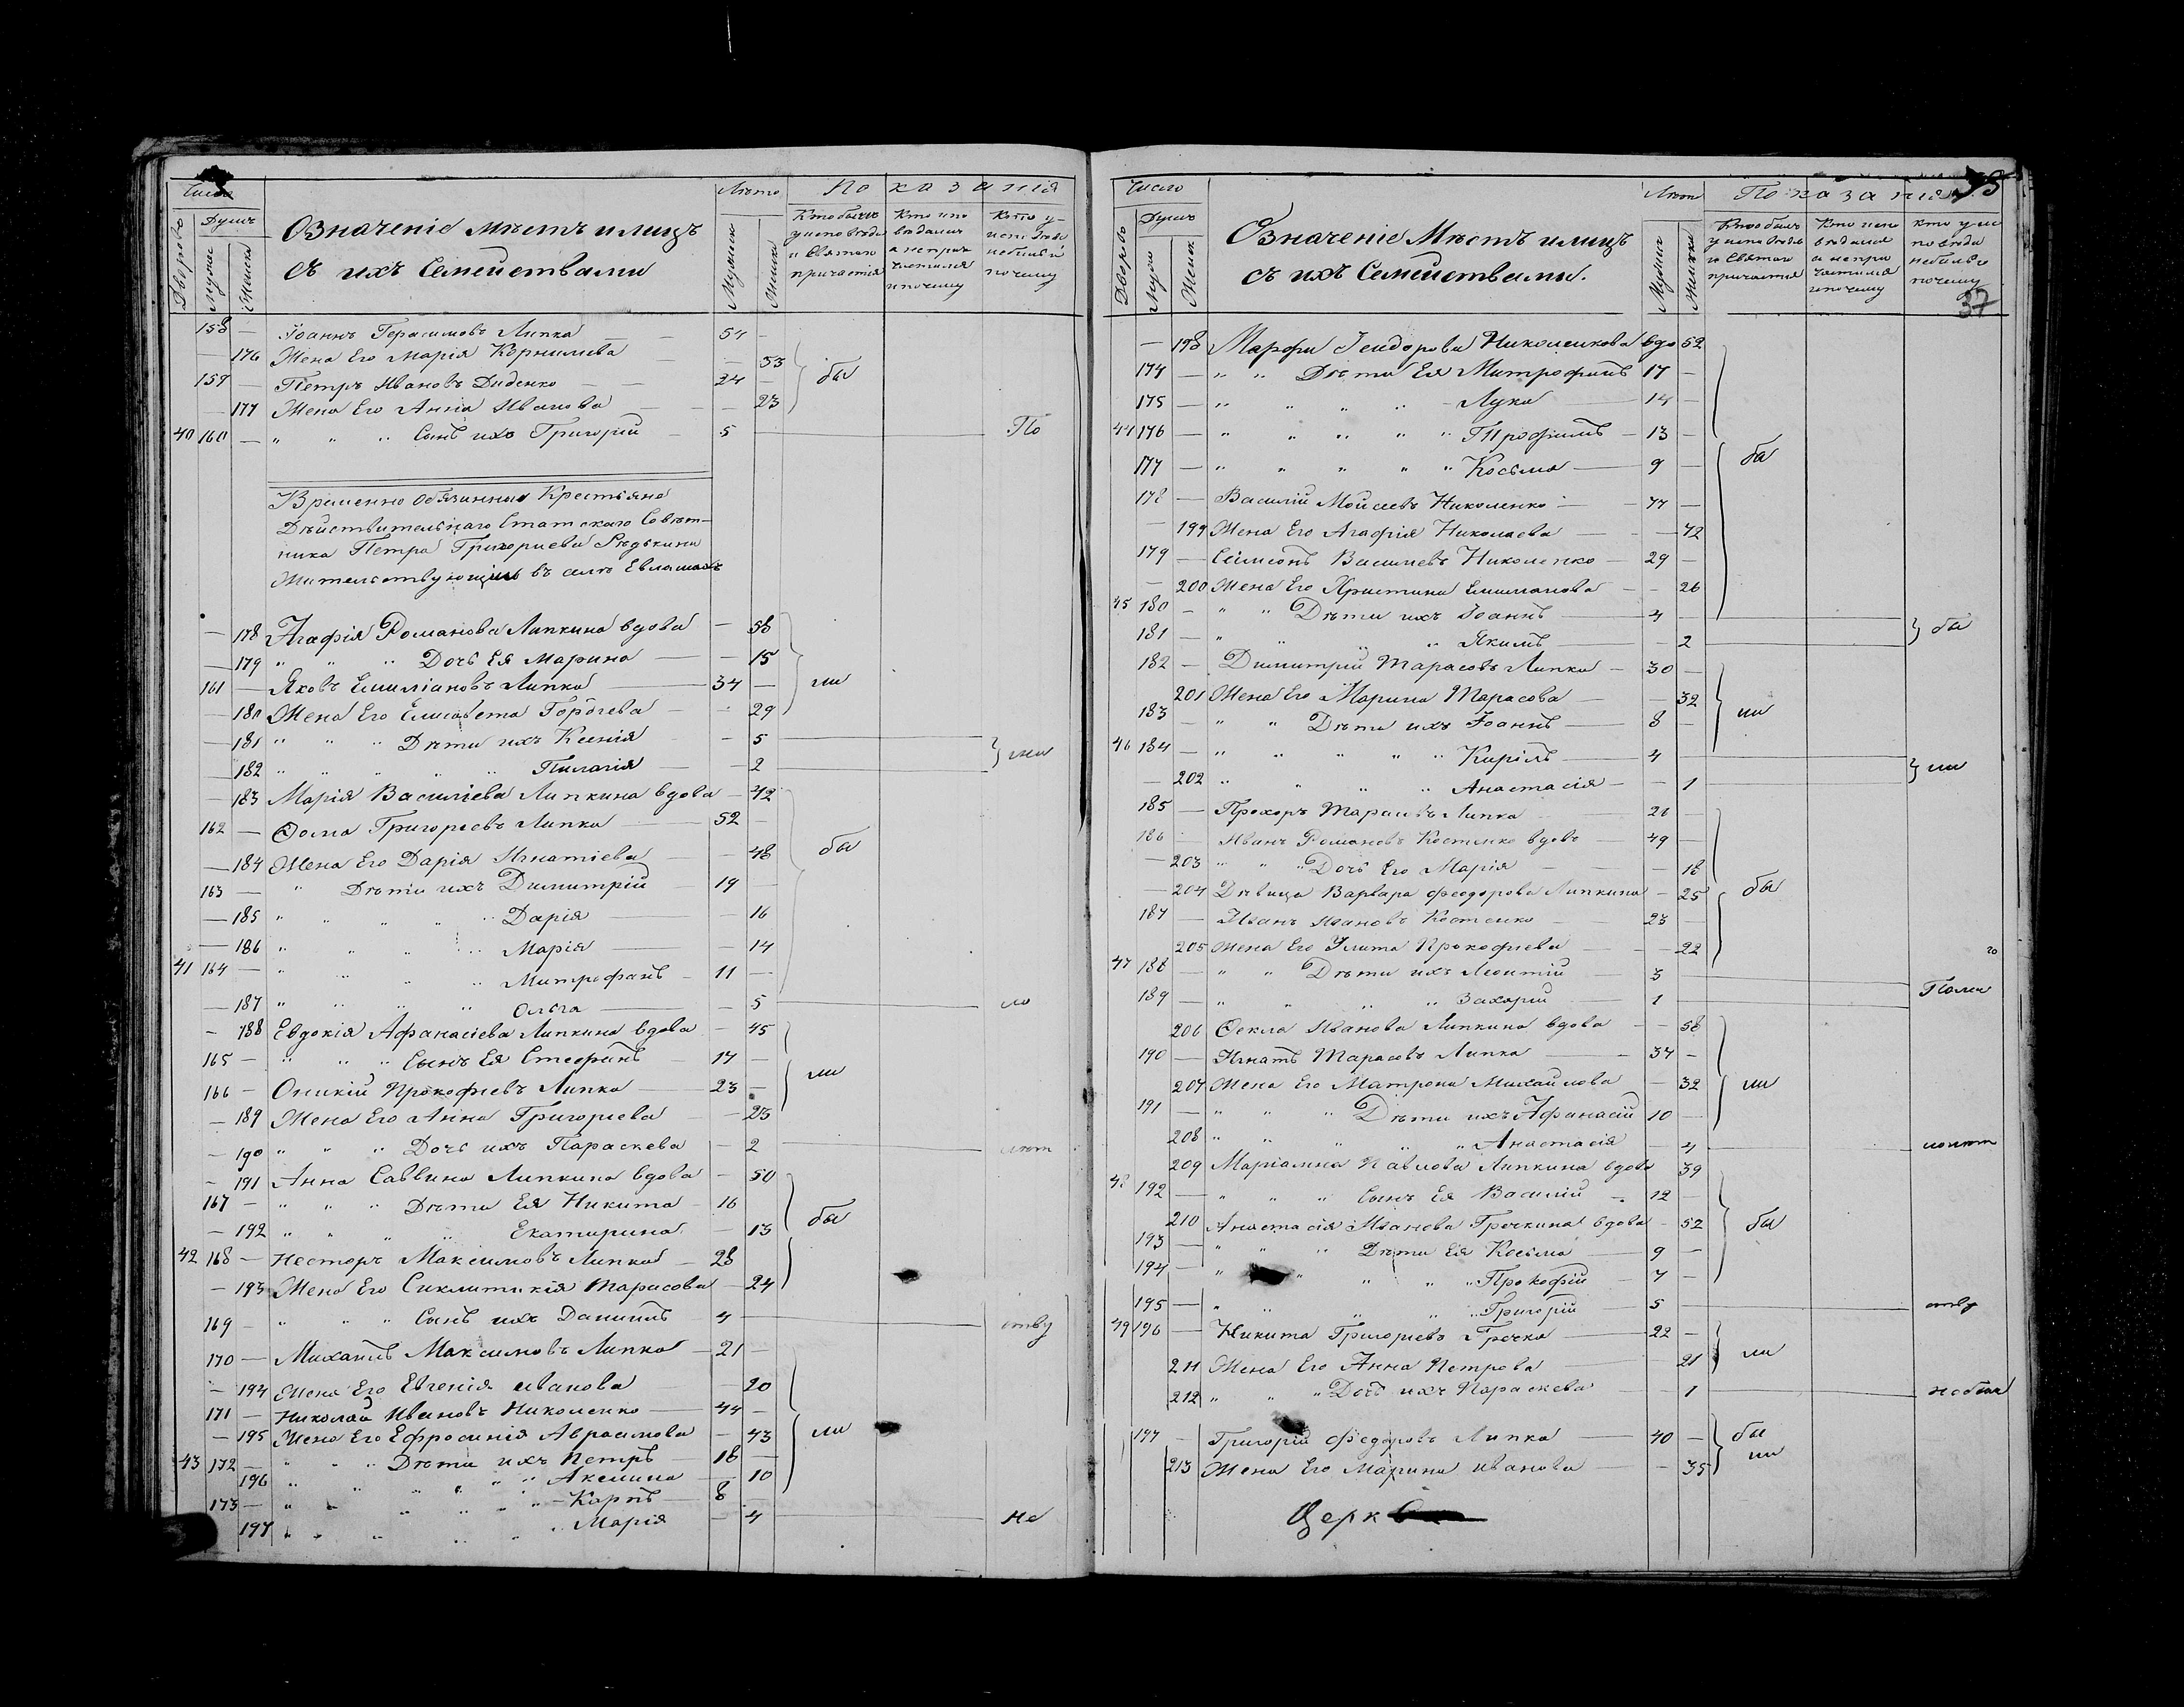 Число
Дворовъ
Душъ
Мужес
Женска
Означеніе мѣстъ и лицъ
съ ихъ Семействами
Лѣта
Мужеска
Женска
Показанія
Кто былъ
у исповѣди
и Святаго
причастія
Кто испо
вѣдался
а не прич
частился
и почему
Кто у
исповѣди
не былъ и
почему
158 — Іоаннъ Герасимовъ Липка — 54 —
— 176 Жена Его Марія Корнилиева — — 53
159 — Петръ Ивановъ Диденко — 24 — бы
— 177 Жена Его Анна Иванова — — 23
40 160 — " " " Сынъ ихъ Григорій — 5 — По
Временно Обязанныя Крестьяне
Дѣйствительнаго Статскаго Совѣт-
ника Петра Григориева Рѣдькина
Жительствующіе въ селѣ Евлашахъ
— 178 Агафія Романова Липкина вдова — 58
— 179 " " " Дочь Ея Марина — — 15
161 — Яковъ Емиліановъ Липка — 34 — ли
— 180 Жена Его Елисавета Гордѣева — — 29
— 181 " " " Дѣти ихъ Ксенія — 5
— 182 " " " " " Пилагія — — 2
— 183 Марія Василіева Липкина вдова — 42
162 — Ѳома Григорьевъ Липка — 52 —
— 184 Жена Его Дарія Игнатіева — 48 бы
163 — " Дѣти ихъ Димитрій — 19 —
— 185 " " " " " Дарія — — 16
— 186 " " " " Марія — — 14
41 164 — " " " " Митрофанъ — 11 —
— 187 " " " " Ольга — — 5
— 188 Евдокія Афанасіева Липкина вдова — 45
165 — " " " Сынъ Ея Стефанъ — 17 —
166 — Оникій Прокофиевъ Липка — 23 — ли
— 189 Жена Его Анна Григориева — — 23
— 190 " " " Дочь ихъ Параскева — 2
— 191 Анна Саввина Липкина вдова — 50
167 — " " " Дѣти Ея Никита 16
— 192 " " " " Екатирина — 13 бы
42 168 — Несторъ Максимовъ Липка — 28
— 193 Жена Его Сиклитикія Тарасова — 24
169 — " " " Сынъ ихъ Даниилъ 4 — ству
170 — Михаилъ Максимовъ Липка — 21 —
— 194 Жена Его Евгенія Иванова — 20
171 — Николай Ивановъ Николенко — 44 —
— 195 Жена Его Ефросинія Аврамова — 43 ли
43 172 — " " " Дѣти ихъ Петръ — 18 —
196 " " " " " Аксинія — 10
173 — " " " " " Карпъ — 8
197 " " " " " Марія — 4 — не
Число
Дворовъ
Душъ
Мужес
Женск
Означеніе Мѣстъ и лицъ
съ ихъ Семействами.
Лѣта
Мужес
Женска
Показанія
Кто былъ
у исповѣди
и Святаго
причастія
Кто испо
вѣдался
и не при
частился
и почему
Кто у ис
повѣди
не былъ и
почему
37
— 198 Марфа Ісидорова Николенкова вдо 52
174 — " " Дѣти Ея Митрофанъ 17 —
175 — " " " " Лука — 14 —
44 176 — " " " " " Трофимъ — 13 —
177 — " " " " " Косьма — 9 — бы
178 — Василій Мойсеевъ Николенко — 77 —
— 199 Жена Его Агафія Николаева — — 72
179 — Симеонъ Василиевъ Николенко — 29 —
— 200 Жена Его Христина Емилианова — — 26
45 180 — " " Дѣти ихъ Іоаннъ — 4 —
181 — " " " " Якимъ — 2 — бы
182 — Димитрій Тарасовъ Липка — 30 —
201 Жена Его Марина Тарасова — — 32
183 — " " Дѣти ихъ Іоаннъ — 8 — ли
46 184 — " " " " " Кирилъ — 4 —
— 202 " " " " Анастасія — — 1 ли
185 — Прохоръ Тарасовъ Липка 21 —
186 — Иванъ Романовъ Костенко вдовъ — 49 —
— 203 " " " Дочь Его Марія — 18
— 204 Дѣвица Варвара Феодорова Липкина — 25 бы
187 — Иванъ Ивановъ Костенко — 23 —
205 Жена Его Улита Прокофиева — — 22
47 188 — " " Дѣти ихъ Леонтій — 3
189 — " " " " Захарій — 1
206 Ѳекла Иванова Липкина вдова — — 58
190 — Игнатъ Тарасовъ Липка — 34 —
207 Жена Его Матрона Михайлова — 32 ли
191 — " " " Дѣти ихъ Афанасій 10 —
208 " " " " " Анастасія — 4
209 Маріамна Павлова Липкина вдова 39
48 192 — " " " Сынъ Ея Василій — 12 —
210 Анастасія Иванова Гречкина вдова — 52 бы
193 — " " " Дѣти Ея Косьма — 9 —
194 — " " " " " Прокофій — 7 —
195 — " " " " " Григорій — 5 — ству
49 196 — Никита Григориевъ Гречка — 22 —
211 Жена Его Анна Петрова — 21 ли
212 " " " Дочь ихъ Параскева — 1
197 — Григорій Федоровъ Липка — 40 — бы
213 Жена Его Марина Иванова — — 35 ли
Церк